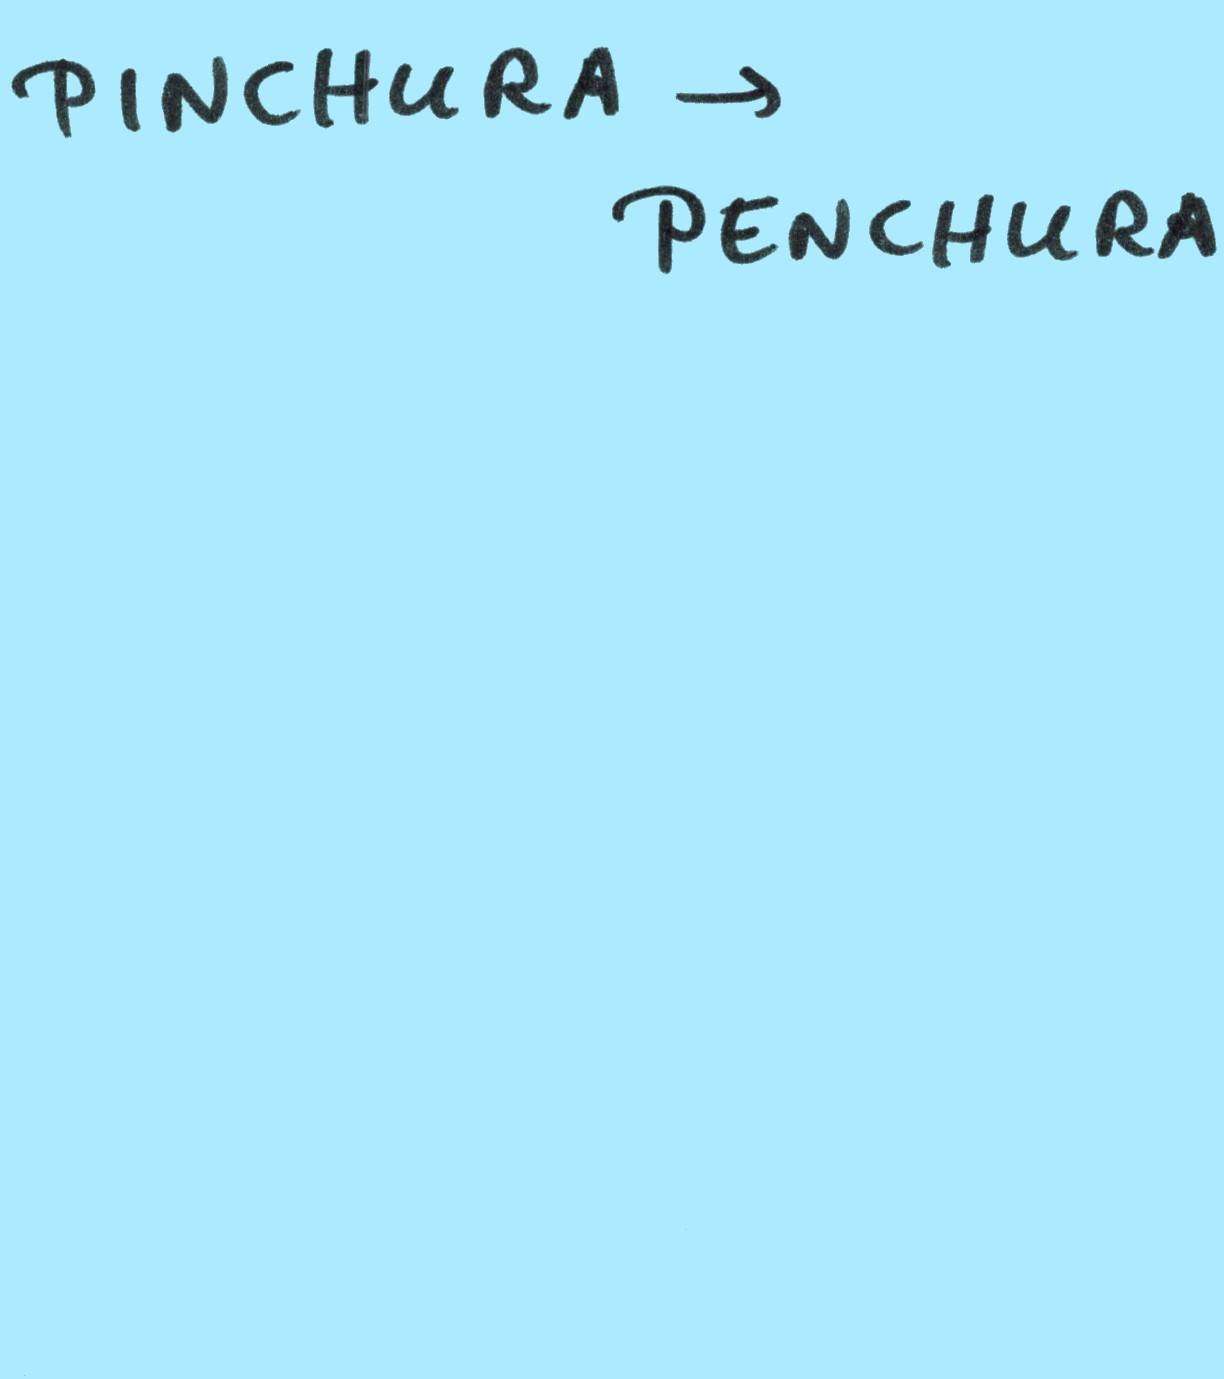 PINCHURA →
PENCHURA